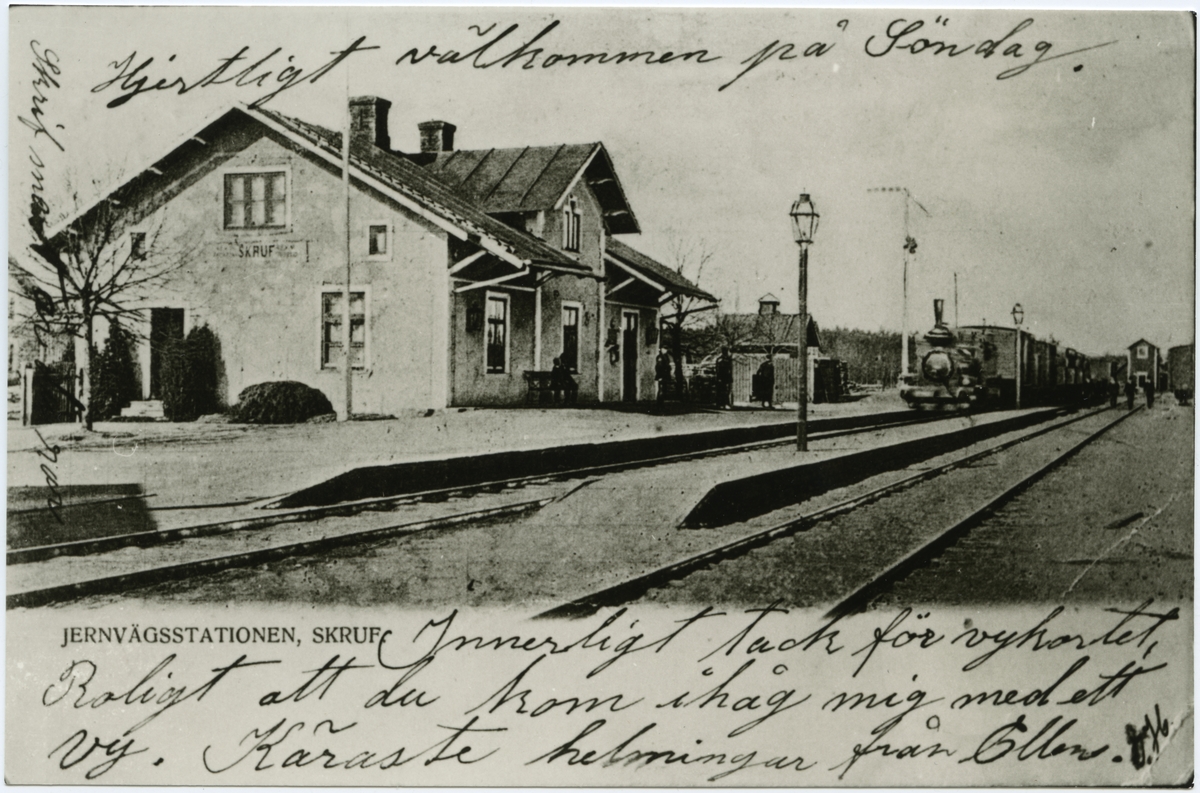 Hjertligt välkommen på Söndag.
Skrif snart
SKRUF
JERNVÄGSSTATIONEN, SKRUF.
Innerligt tack för vykortet,
Roligt att du kom ihåg mig med ett
vy. Käraste helmingar från Ellen.